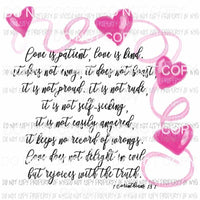 Love is patient, love is kind.
it does not envy, it does not boast
it is not proud. it is not rude,
it is not self-seeking,
it is not easily angered,
it keeps no record of wrongs.
Love does not delight in evil
but rejoices with the truth.